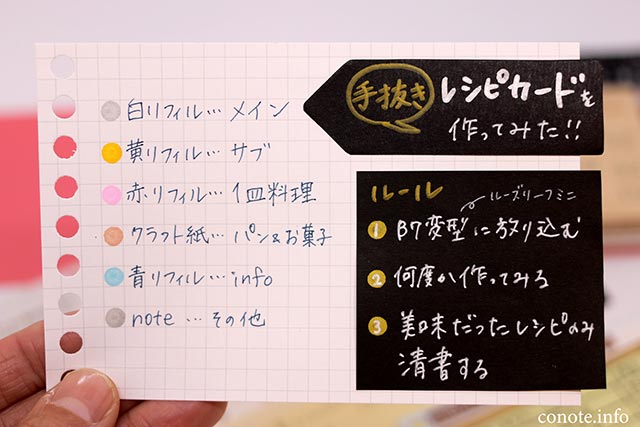 手抜き レシピカードを
作ってみた!!
白リフィル… メイン
黄リフィル… サブ
赤リフィル… 1皿料理
クラフト紙… パン&お菓子
青リフィル… info
note … その他
ルール
ルーズリーフミニ
1 B7変型に放り込む
2 何度か作ってみる
3 美味だったレシピのみ
清書する
conote.info